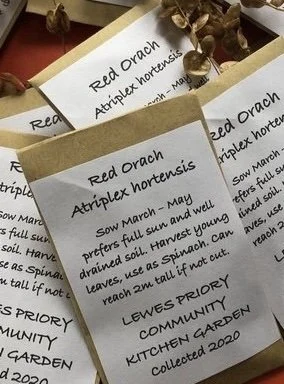 Red Orach
Atriplex hortensis
March - May
Red
Red Orach
Atriplex hortensis
Sow March - May
prefers full sun and well
drained soil. Harvest young
leaves, use as Spinach. Can
reach 2m tall if not cut.
LEWES PRIORY
COMMUNITY
KITCHEN GARDEN
Collected 2020
Atriple
Sow
prefers full sun
drained soil.
leaves, use as
reach 2m tall if n
LEWES PRIORY
COMMUNITY
KITCHEN GARDEN
Collected 2020
Red Orach
Atriplex horten
Sow March -
prefers full su
drained soil.
leaves, use
reach 2